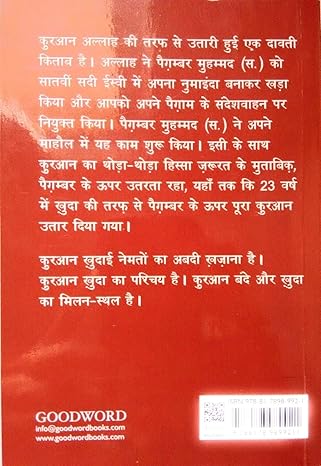 क़ुरआन अल्लाह की तरफ़ से उतारी हुई एक दावती
किताब है। अल्लाह ने पैग़म्बर मुहम्मद (स.) को
सातवीं सदी ईस्वी में अपना नुमाइंदा बनाकर खड़ा
किया और आपको अपने पैग़ाम के संदेशवाहन पर
नियुक्त किया। पैग़म्बर मुहम्मद (स.) ने अपने
माहौल में यह काम शुरू किया। इसी के साथ
क़ुरआन का थोड़ा-थोड़ा हिस्सा ज़रूरत के मुताबिक़,
पैग़म्बर के ऊपर उतरता रहा, यहाँ तक कि 23 वर्ष
में ख़ुदा की तरफ़ से पैग़म्बर के ऊपर पूरा क़ुरआन
उतार दिया गया।
क़ुरआन ख़ुदाई नेमतों का अबदी ख़ज़ाना है।
क़ुरआन ख़ुदा का परिचय है। क़ुरआन बंदे और ख़ुदा
का मिलन-स्थल है।
GOODWORD
info@goodwordbooks.com
www.goodwordbooks.com